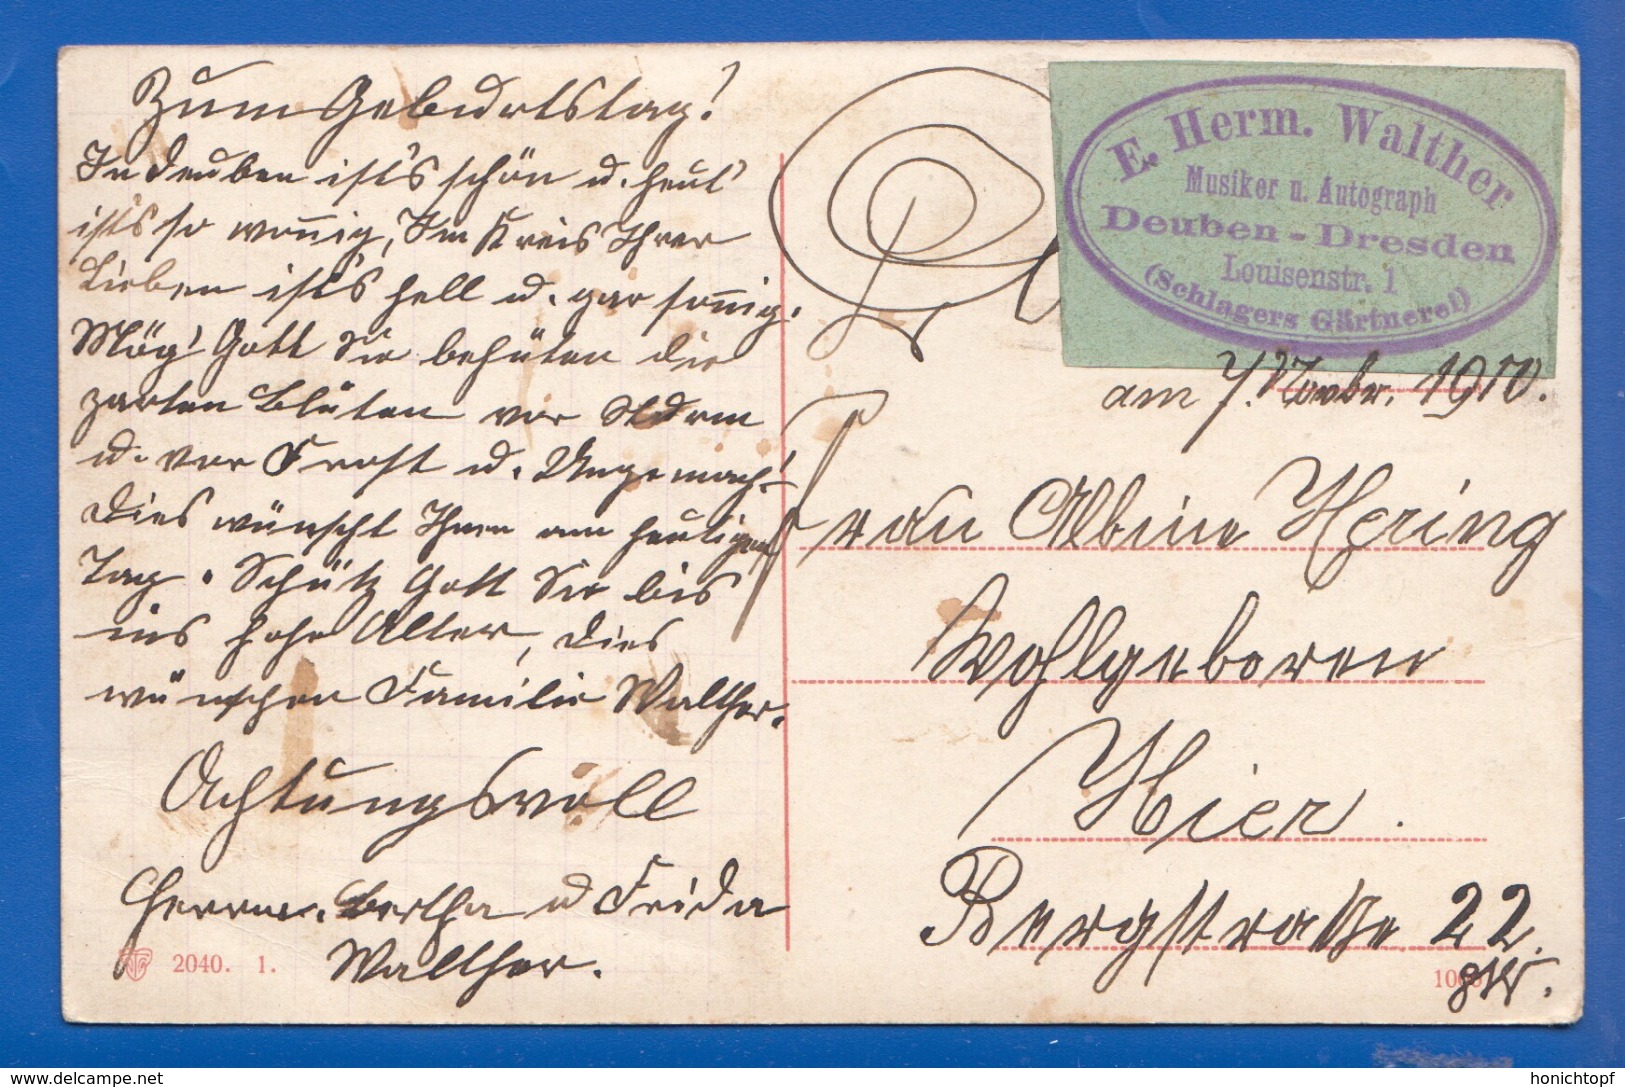 Zum Geburtstag!
In Deuben ist's schön u. heut'
ist's so wonnig, Im Kreis Ihrer
Lieben ist's hell u. gar sonnig.
Mög' Gott Sie behüten die
zarten Blüten vor Sturm
u. vor Frost u. Ungemach!
Dies wünscht Ihnen am heutigen
Tag. Schütz Gott Sie bis
ins hohe Alter, dies
wünschen Familie Walther.
Achtungsvoll
Bertha u Frida
Walther.
2040. 1.
E. Herm. Walther
Musiker u. Autograph
Deuben-Dresden
Louisenstr. 1
(Schlagers Gärtnerei)
am 7. Novbr. 1910.
Frau Albine Hering
Wohlgeboren
Hier.
Bergstraße 22.
delcampe.net
honichtopf